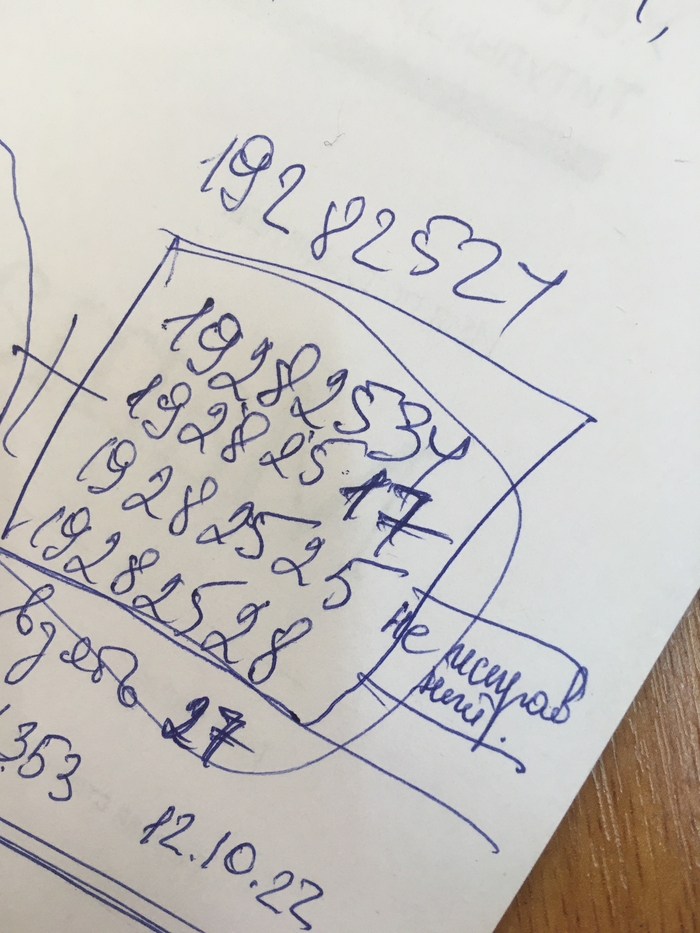 19282524
19282534
19282517
19282525
19282528
неисправ
ный.
взять 27
353
12.10.22